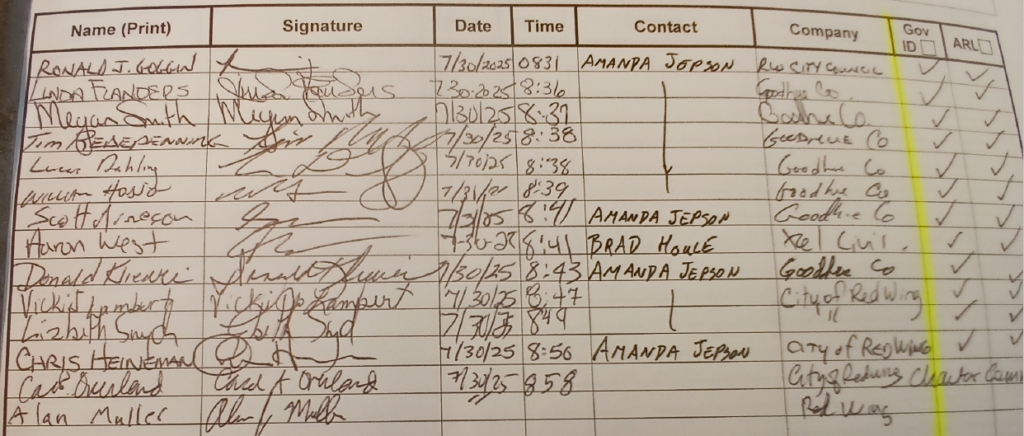 Name (Print) Signature Date Time Contact Company Gov ID ARL
RONALD J. GOGGIN 7/30/2025 0831 AMANDA JEPSON RED CITY COUNCIL
LINDA FLANDERS Linda Flanders 7-30-2025 8:36 Goodhue Co.
Megan Smith Megan Smith 7/30/25 8:37 Goodhue Co.
Tim 7/30/25 8:38 GOODHUE CO
Lucas Dahling 8:38 Goodhue Co
William 8:39 Goodhue Co
Scott Arneson 8:41 AMANDA JEPSON Goodhue Co
Aaron West 8:41 BRAD HOULE Xcel Civil.
Donald 7/30/25 8:43 AMANDA JEPSON Goodhue Co
Vicki Jo Lambert Vicki Jo Lambert 7/30/25 8:47 City of Red Wing
Lizbeth 7/30/25 849 "
CHRIS HEINEMAN 7/30/25 8:50 AMANDA JEPSON CITY of RED WING
Carl Overland 7/30/25 858 City of Redwing Charter Comm
Alan Muller Alan Muller Red Wing